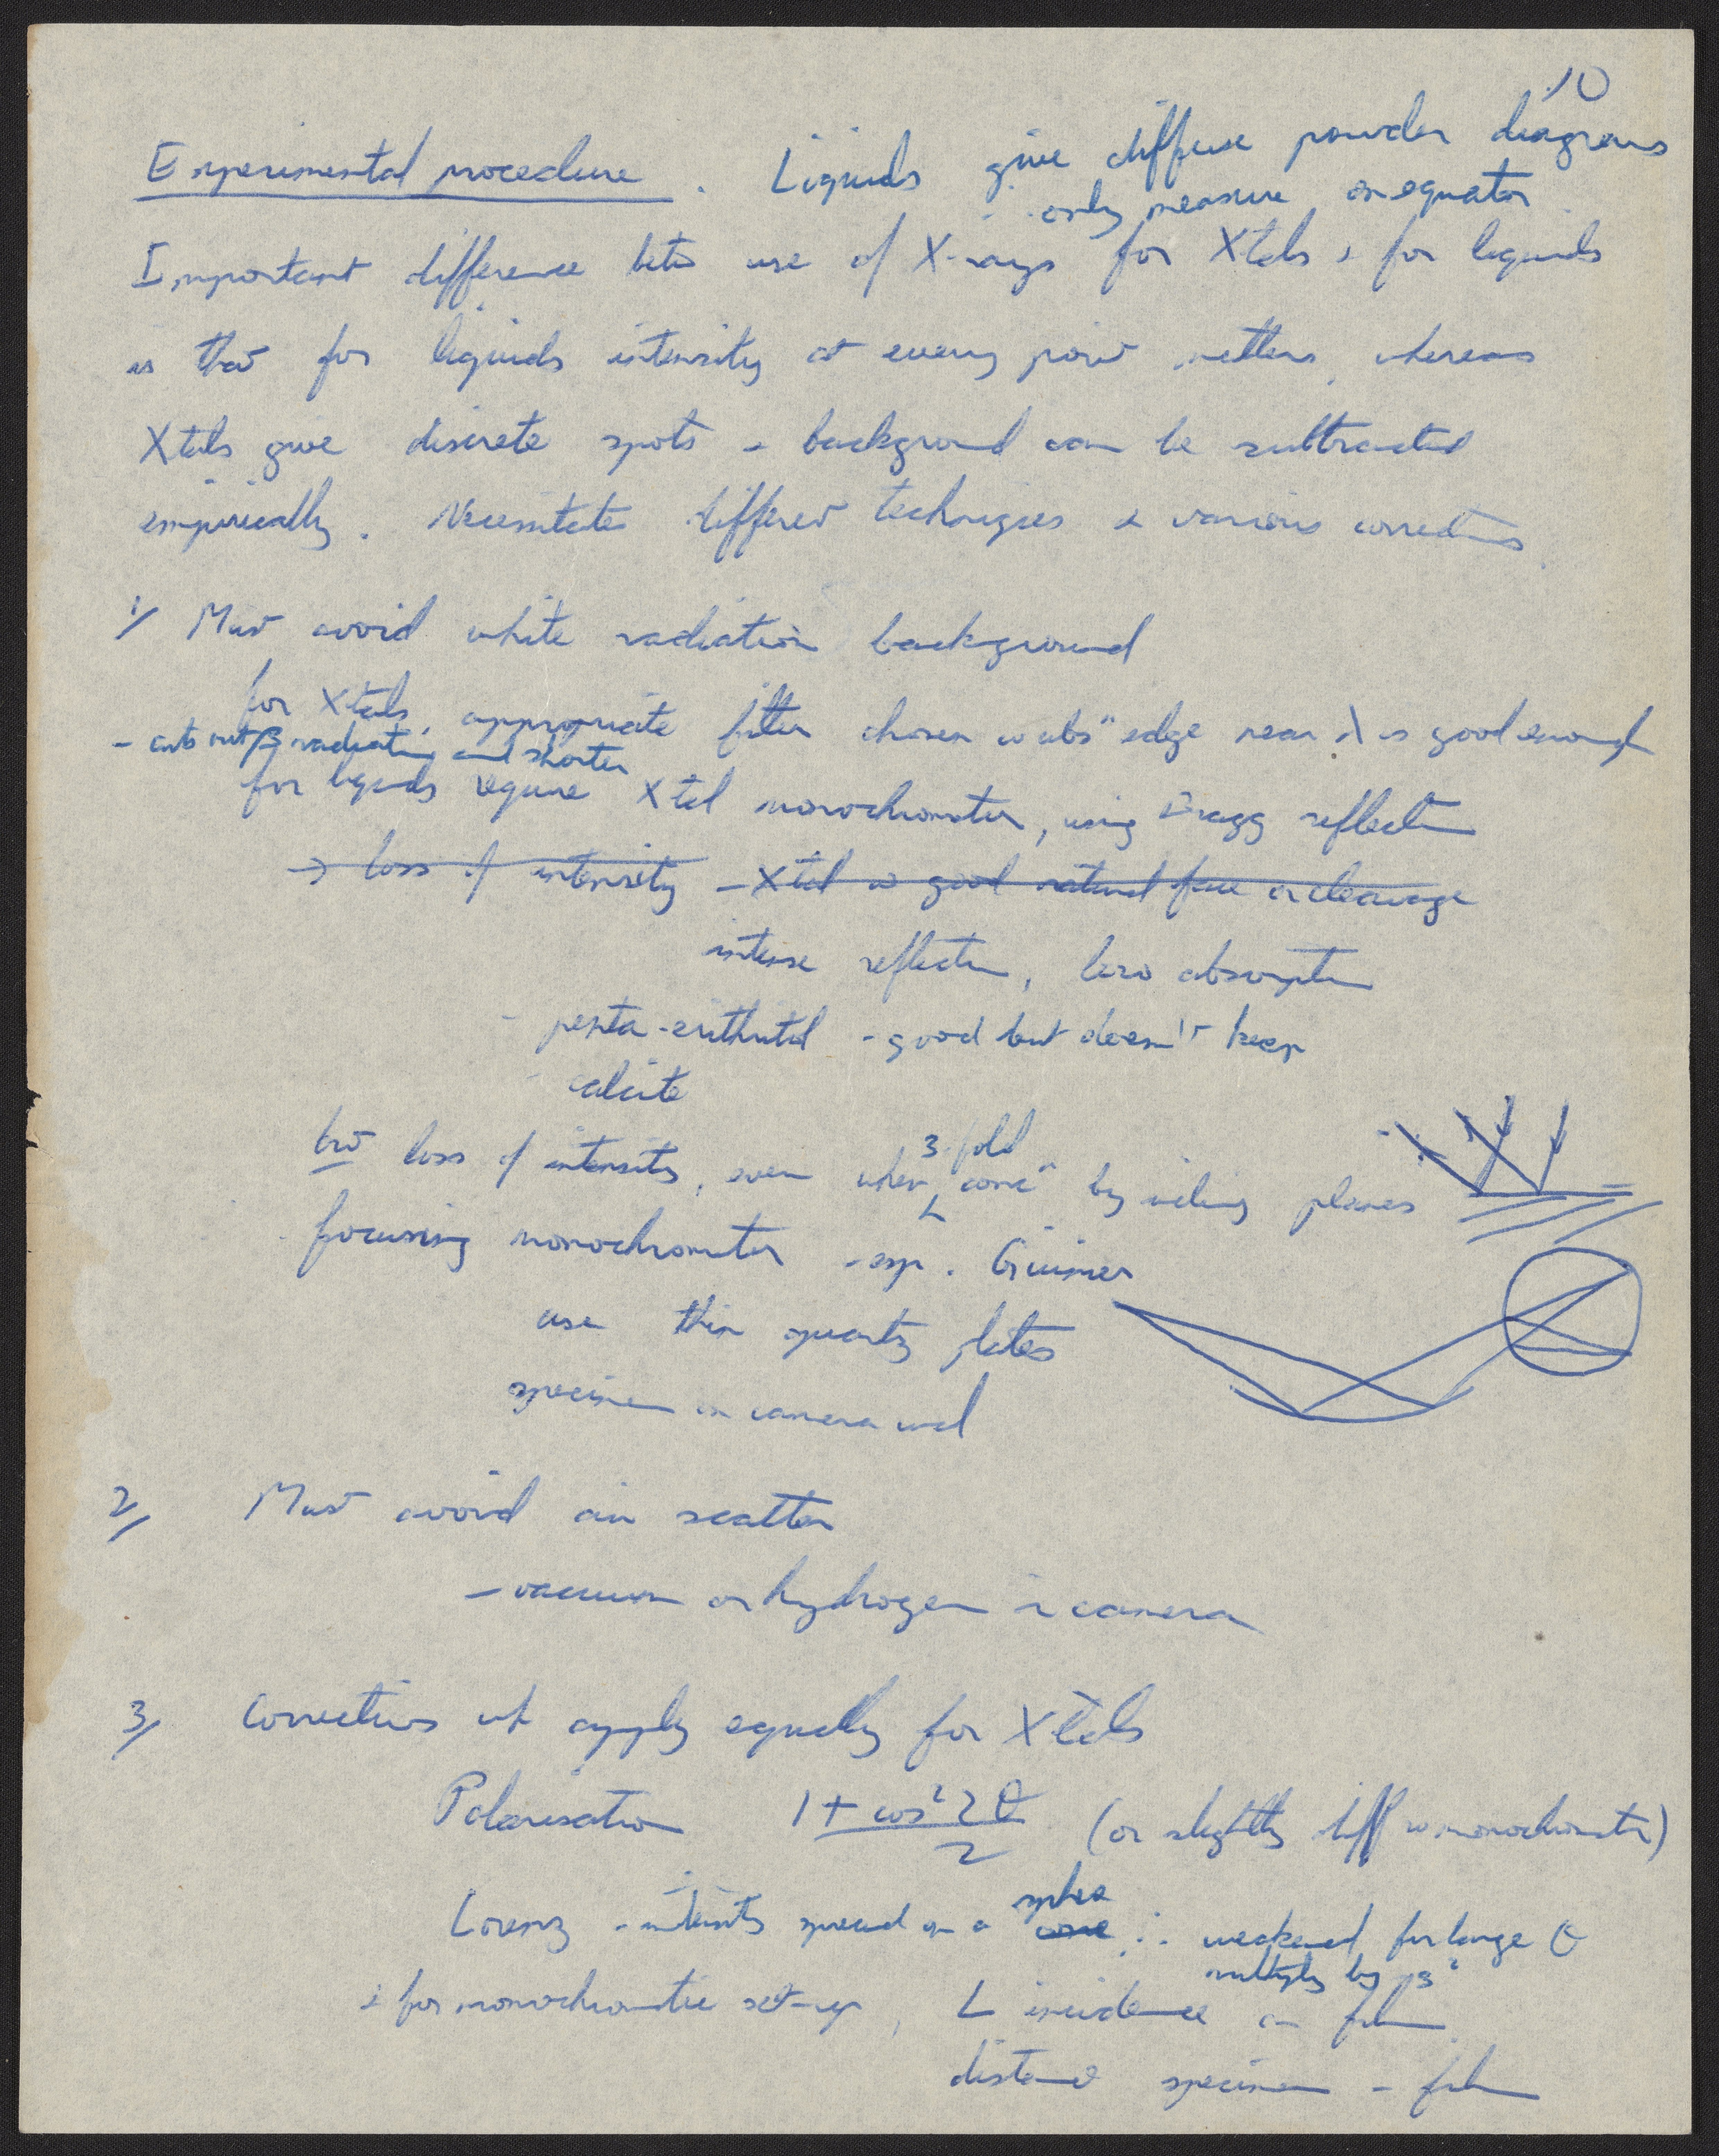 10
Experimental procedure. Liquids give diffuse powder diagrams
only measure on equator
Important difference betn use of X-rays for Xtals & for liquids
is that for liquids intensity at every point matters, whereas
Xtals give discrete spots - background can be subtracted
empirically. Necessitates different techniques & various corrections.
1/ Must avoid white radiation background
for Xtals, appropriate filter chosen w absn edge near λ is good enough
- cuts out β radiation and shorter
for liquids require Xtal monochromator, using Bragg reflection
→ loss of intensity - Xtal w good natural face or cleavage
intense reflection, low absorption
- penta-erithritol - good but doesn't keep
calcite
but loss of intensity, even when 3-fold concn by inclining planes
focusing monochromator - esp. Guinier
use thin quartz plates
specimen on camera wall
2/ Must avoid air scatter
- vacuum or hydrogen in camera
3/ Corrections wh apply equally for Xtals
Polarisation 1 + cos² 2θ / 2 (or slightly diff w monochromator)
Lorenz - intensity spread on a cone sphere ∴ weakened for large θ
multiply by
& for monochromatic set-up, ⊥ incidence on film
distance specimen - film